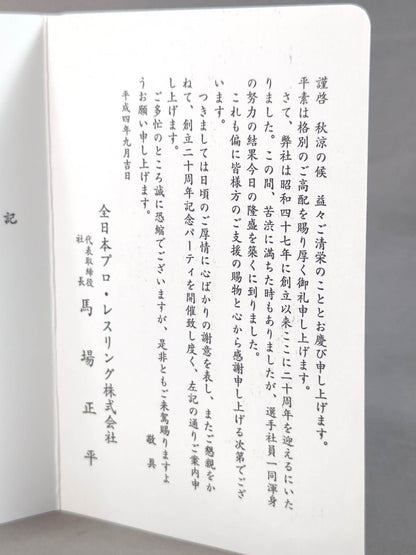 謹啓　秋涼の候　益々ご清栄のこととお慶び申し上げます。
平素は格別のご高配を賜り厚く御礼申し上げます。
さて、弊社は昭和四十七年に創立以来ここに二十周年を迎えるにいた
りました。この間、苦渋に満ちた時もありましたが、選手社員一同渾身
の努力の結果今日の隆盛を築くに到りました。
これも偏に皆様方のご支援の賜物と心から感謝申し上げる次第でござ
います。
つきましては日頃のご厚情に心ばかりの謝意を表し、またご懇親をか
ねて、創立二十周年記念パーティを開催致し度く、左記の通りご案内申
し上げます。
ご多忙のところ誠に恐縮でございますが、是非ともご来駕賜りますよ
うお願い申し上げます。
敬具
平成四年九月吉日
全日本プロ・レスリング株式会社
代表取締役
社長
馬場正平
記